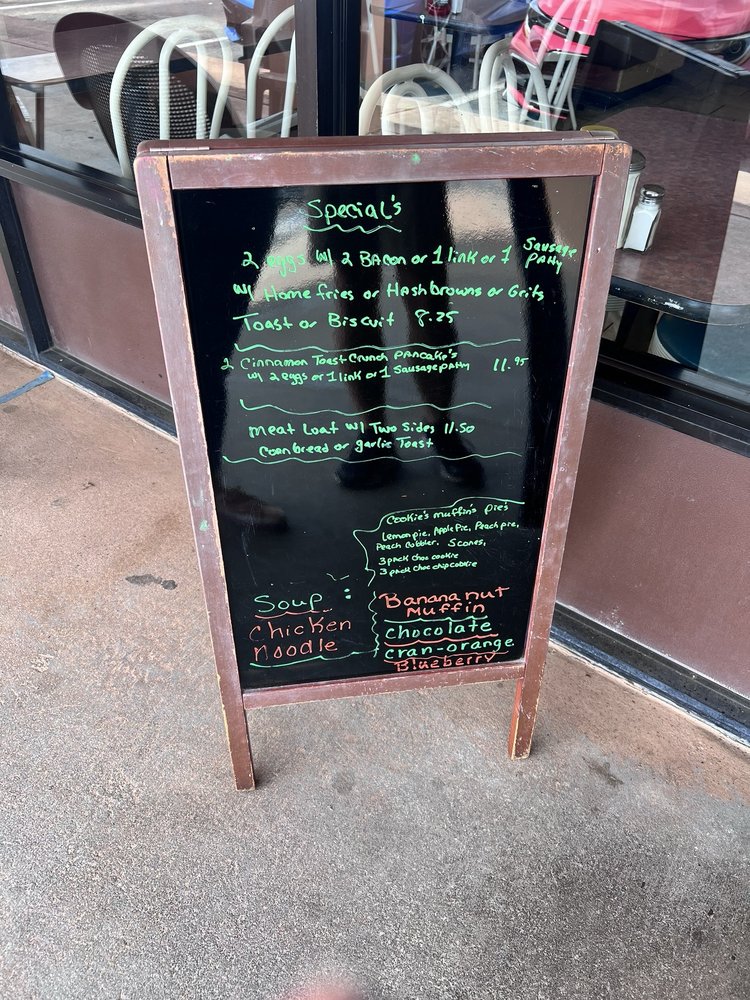 Special's
2 eggs w/ 2 Bacon or 1 link or 1 Sausage Patty
w/ Home fries or Hashbrowns or Grits
Toast or Biscuit 8.25
2 Cinnamon Toast Crunch Pancake's
w/ 2 eggs or 1 link or 1 Sausage Patty 11.95
Meat Loaf w/ Two Sides 11.50
Cornbread or garlic Toast
Cookie's muffin's pie's
Lemon pie, Apple Pie, Peach pie,
Peach Cobbler. Scones,
3 pack choc cookie
3 pack choc chip cookie
Soup:
Chicken
Noodle
Banana nut
Muffin
chocolate
cran-orange
Blueberry